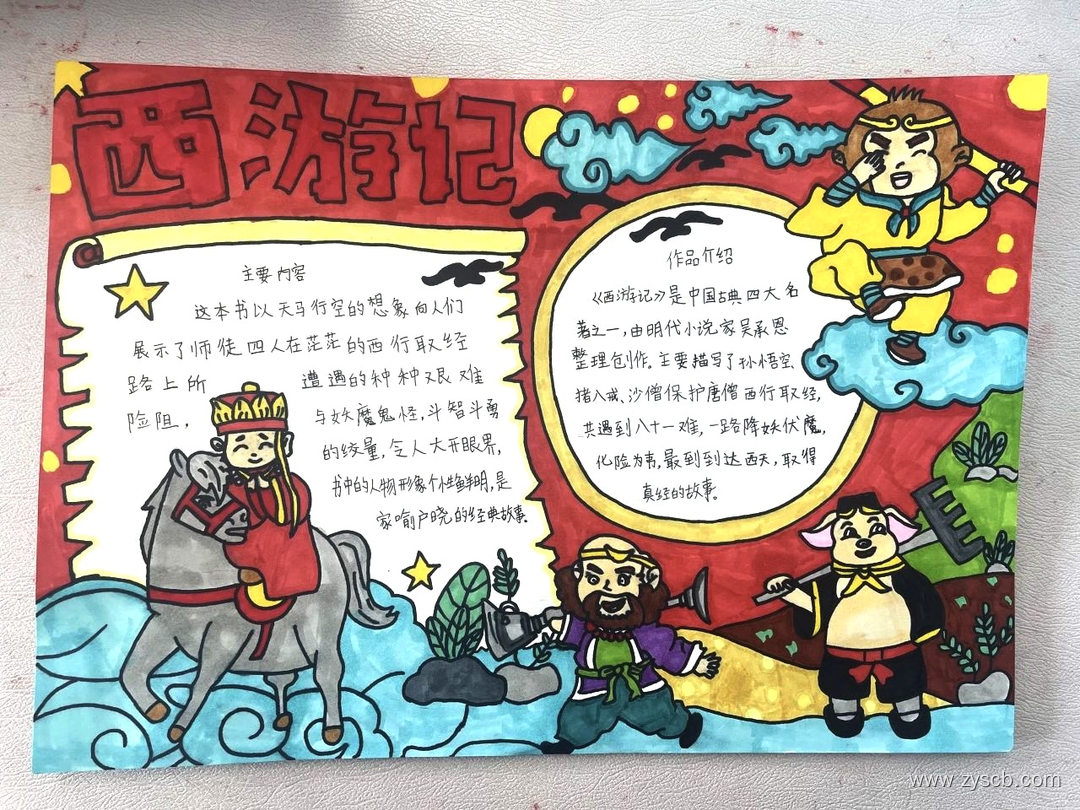 西游记
主要内容
这本书以天马行空的想象向人们
展示了师徒四人在茫茫的西行取经
路上所遭遇的种种艰难
险阻，与妖魔鬼怪，斗智斗勇
的较量，令人大开眼界，
书中的人物形象个性鲜明，是
家喻户晓的经典故事。
作品介绍
《西游记》是中国古典四大名
著之一，由明代小说家吴承恩
整理创作。主要描写了孙悟空、
猪八戒、沙僧保护唐僧西行取经，
共遇到八十一难，一路降妖伏魔，
化险为夷，最到到达西天，取得
真经的故事。
www.zyscb.com